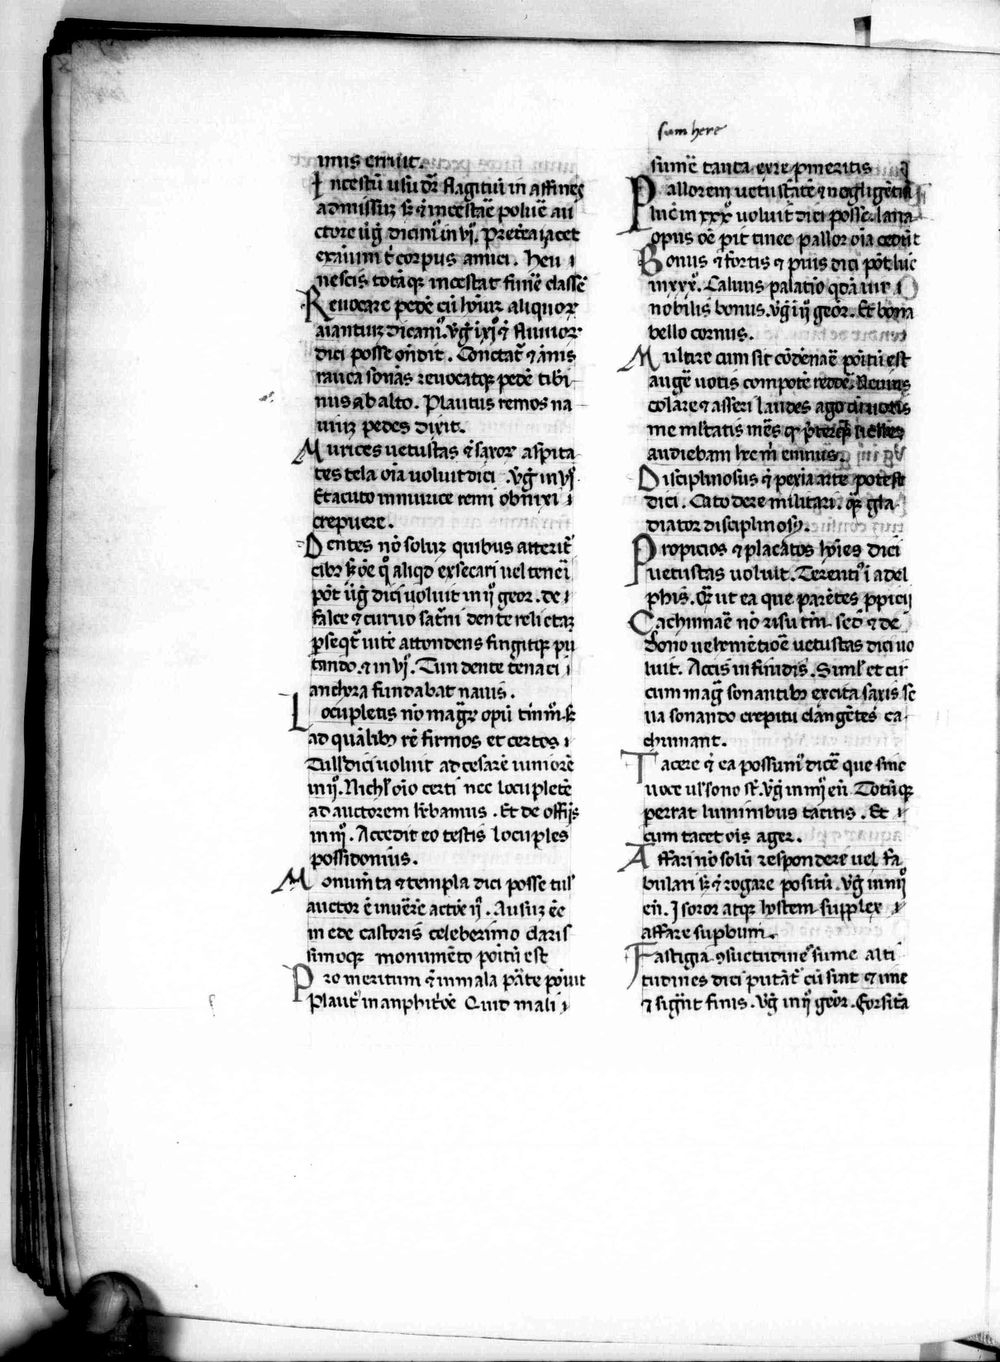 sum here
imis erruit.
Incestū usu dr̄ flagitiū in affines
admissuꝫ sꝫ ⁊ incestaē poluē au
ctore ūg dicimꝰ in vj. Pretēa iacet
exaīum t̄ corpus amici. heu
nescis totāqꝫ incestat funē classē
Reuocare pedē cū hōiuꝫ aliquoꝝ
aiantiuꝫ dicamꝰ. vḡ i xiꝰ ⁊ fluuioꝝ
dici posse on̄dit. Conctat̄ ⁊ āmis
rauca sonās reuocatqꝫ pedē tibi
nus ab alto. Plautus remos na
uiuꝫ pedes dixit.
Murices uetustas ⁊ saxoꝝ aspita
tes tela oīa uoluit dici. vḡ in vj.
Et acuto in murice remi obnixi
crepuere.
Dentes nō soluꝫ quibus atterit̄
cibꝫ sꝫ oē qͦ aliqd exsecari uel teneī
pōt ūg dici uoluit in ijͦ geor. de
falce ⁊ curuo sat̄ni dente relictaꝫ
ꝑseqt̄ uitē attondens fingitqꝫ pu
tando. ⁊ in vj. Tun dente tenaci
anchora fundabat nauis.
Locupletis nō magꝝ opū tm̄ mꝰ sꝫ
ad quālibꝫ rē firmos et certos
Tull dici voluit ad cesarē iuniorē
in ij. Nichl̓ oīo certi nec locupletē
ad auctorem hēbamus. Et de offijs
in iijͦ. Accedit eo testis locuples
possidonius.
Monum̄ta ⁊ templa dici posse tul̓
auctor ē inuēre actōe ijͦ. Ausuꝫ eē
in ede castoris celeberimo claris
simoqꝫ monumēto poitū est
Pro meritum ⁊ in mala ꝑāte pōuit
Plaut̓ in anphitōē Quid mali
sumē tanta exre ꝓmeritis
Pallorem uetustatē ⁊ negligētiā
hūc in xxxͦ voluit dici posse. lana
opus oē pit tinee pallor oīa cedūt
Bonus ⁊ fortis ⁊ pius dici pōt luc
in xxxͦ. Caluus palatiō qdā uir
nobilis bonus. vḡ i ij geōr. Et bona
bello cornus.
Multare cum sit cōdēnaē poītū est
augē uotis compotē redde. Neuius
colare ⁊ asseri laudes ago cū uotis
me mltatis
audiebam hrem ennius.
Disciplinosus ⁊ pexia arte potēst
dici. Cato de re militari. qꝫ gla
diator disciplinosꝰ.
Propicios ⁊ placātos hōies dici
uetustas uoluit. Terentiꝰ i adel
phis. Qꝫ ut ea que parētes ꝓpicij
Cachinnaē nō risu tm̄. sed ⁊ de
sono uehemētiōē uetustas dici uo
luit. Accis in finidis. Siml̓ et cir
cum mag̓ sonantibꝫ excita saxis se
ua sonando crepitu clangētes ca
chinnant.
Tacere ⁊ ea possunꝰ dicē que sine
uoce ul̓ sono st̄. vḡ in iiij en̄. Totūqꝫ
perrat luminibus tacitis. Et
cum tacet ois ager.
Affari nō solū respondere uel fa
bulari sꝫ ⁊ rogare positū. vḡ in iiijͦ
en̄. I soror atqꝫ hostem supplex
affare supbum.
Fastigia ꝯsuetudineꝰ sume alti
tudines dici putāt̄ cū sint ⁊ ime
⁊ sigt̄nt finis. vḡ in ijͦ geōr. Forsitā